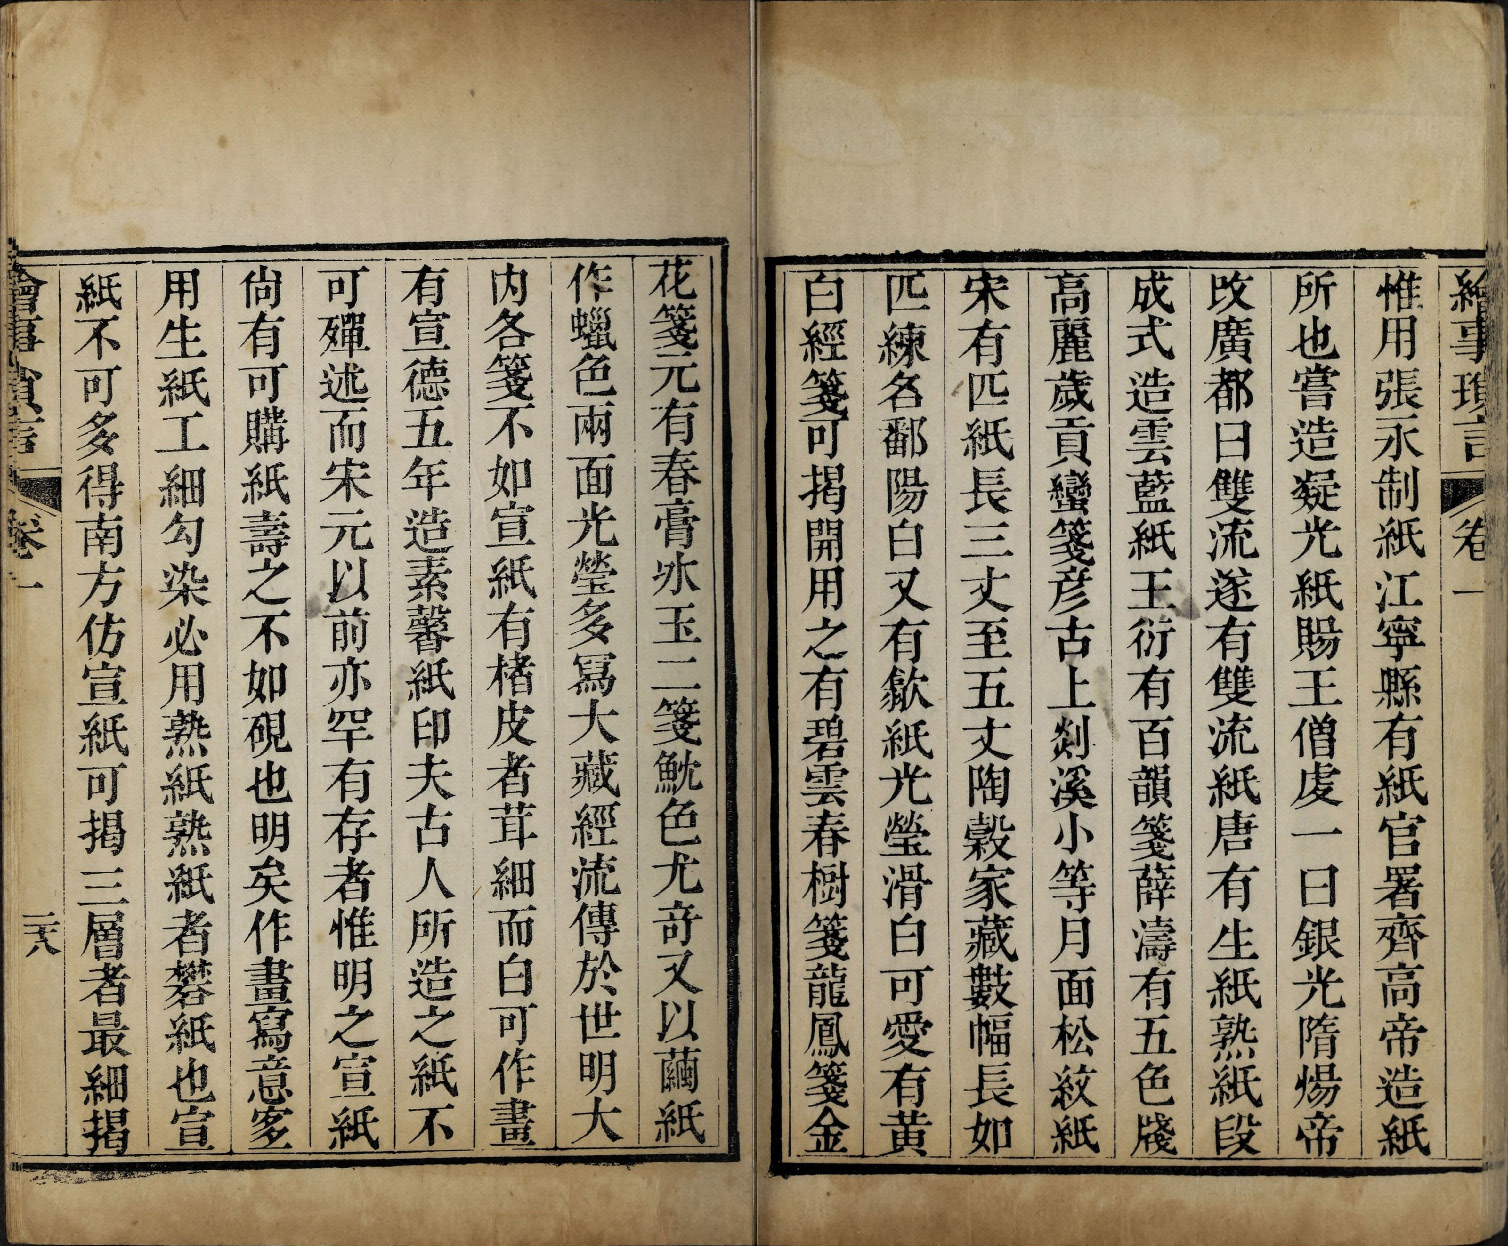 繪事瑣言 卷一
惟用張永制紙江寧縣有紙官署齊高帝造紙
所也嘗造凝光紙賜王僧虔一曰銀光隋煬帝
改廣都曰雙流遂有雙流紙唐有生紙熟紙段
成式造雲藍紙王衍有百韻箋薛濤有五色牋
高麗歲貢蠻箋彦古上剡溪小等月面松紋紙
宋有匹紙長三丈至五丈陶榖家藏數幅長如
匹練名鄱陽白又有歙紙光瑩滑白可愛有黄
白經箋可揭開用之有碧雲春樹箋龍鳳箋金
花箋元有春膏氷玉二箋魫色尤奇又以繭紙
作蠟色兩面光瑩多寫大藏經流傳於世明大
内各箋不如宣紙有楮皮者茸細而白可作畫
有宣德五年造素馨紙印夫古人所造之紙不
可殫述而宋元以前亦罕有存者惟明之宣紙
尙有可購紙壽之不如硯也明矣作畫寫意多
用生紙工細勾染必用熟紙熟紙者礬紙也宣
紙不可多得南方仿宣紙可揭三層者最細揭
繪事瑣言 卷一 二十八